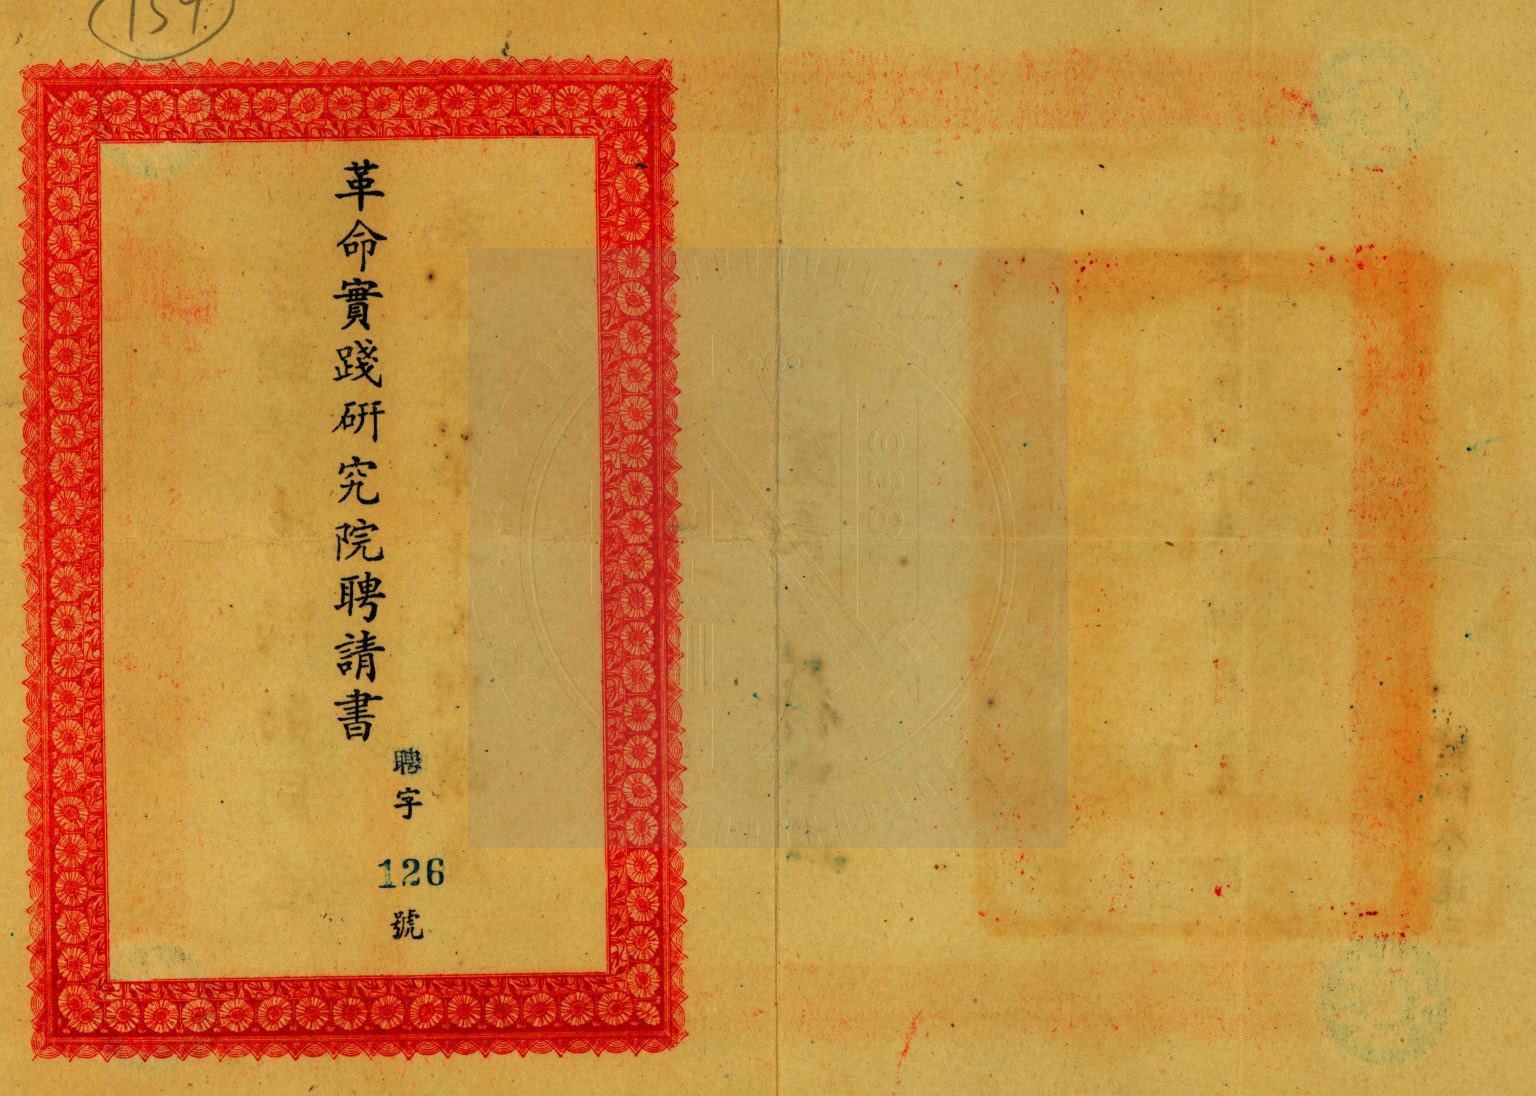 159
革命實踐研究院聘請書
聘字
126
號